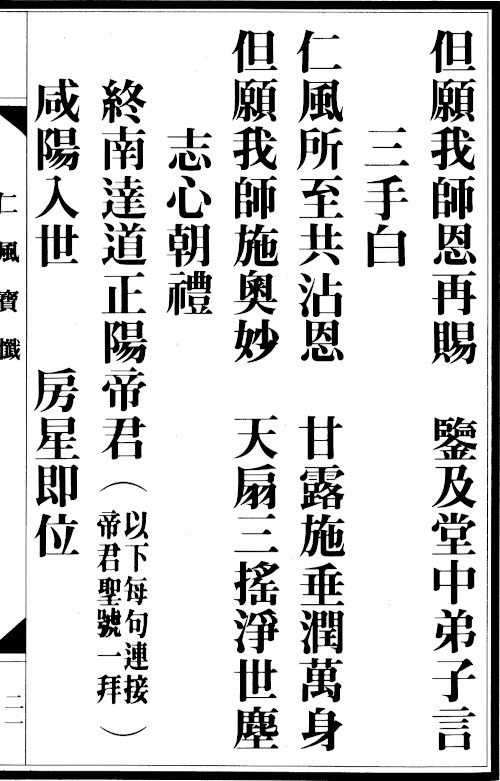 但願我師恩再賜　鑒及堂中弟子言
三手白
仁風所至共沾恩　甘露施垂潤萬身
但願我師施奧妙　天扇三搖淨世塵
志心朝禮
終南達道正陽帝君（以下每句連接帝君聖號一拜）
咸陽入世　房星即位
仁風寶懺
二一